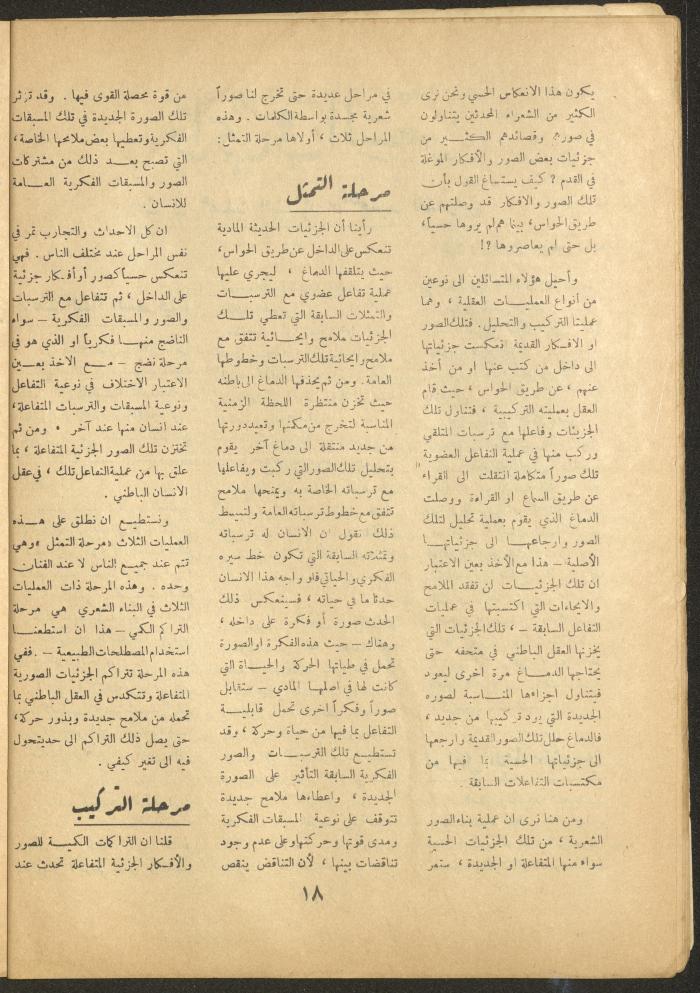 يكون هذا الانعكاس الحسي ونحن نرى
الكثير من الشعراء المحدثين يتناولون
في صورهم وقصائدهم الكثــير من
جزئيات بعض الصور والأفكار الموغلة
في القدم ؟ كيف يستساغ القول بأن
تلك الصور والافكار قد وصلتهم عن
طريق الحواس، بينما هم لم يروها حسياً،
بل حتى لم يعاصروها ؟!
وأحيل هؤلاء المتسائلين الى نوعين
من أنواع العمليــات العقلية ، وهما
عمليتا التركيب والتحليل . فتلك الصور
او الافكار القديمة انعكست جزئياتها
الى داخل من كتب عنها او من أخذ
عنهم ، عن طريق الحواس ، حيث قام
العقل بعمليته التركيبية ، فتناول تلك
الجزيئات وفاعلها مع ترسبات المتلقي
وركب منها في عملية التفاعل العضوية
تلك صوراً متكاملة انتقلت الى القراء
عن طريق السماع او القراءة ووصلت
الدماغ الذي يقوم بعملية تحليل لتلك
الصور وارجاعهــا الى جزئياتهــا
الأصلية – هذا مع الأخذ بعين الاعتبار
ان تلك الجزئيــات لن تفقد الملامح
والايحاءات التي اكتسبتها في عمليات
التفاعل السابقة – ، تلك الجزئيات التي
يخزنها العقل الباطني في متحفه حتى
يحتاجها الدمــاغ مرة اخرى ليعود
فيتناول اجزاءها المنــاسبة لصوره
الجديدة التي يود تركيبها من جديد ،
فالدماغ حلل تلك الصور القديمة وارجعها
الى جزئياتها الحسية بما فيها من
مكتسبات التفاعلات السابقة .
ومن هنا نرى ان عملية بناء الصور
الشعرية ، من تلك الجزئيات الحسية
سواء منها المتفاعلة او الجديدة ، ستمر
في مراحل عديدة حتى تخرج لنا صوراً
شعرية مجسدة بواسطة الكلمات . وهذه
المراحل ثلاث ، أولاها مرحلة التمثل :
مرحلة التمثل
رأينا أن الجزئيات الحديثة المادية
تنعكس على الداخل عن طريق الحواس،
حيث يتلقفها الدماغ ، ليجري عليها
عملية تفاعل عضوي مع الترســبات
والتمثلات السابقة التي تعطي تلــك
الجزئيات ملامح وايحــائية تتفق مع
ملامح وايحائية تلك الترسبات وخطوطها
العامة. ومن ثم يحذفها الدماغ الى باطنه
حيث تخزن منتظرة اللحظة الزمنية
المناسبة لتخرج من مكمنها وتعيد دورتها
من جديد منتقلة الى دماغ آخر يقوم
بتحليل تلك الصور التي ركبت ويفاعلها
مع ترسباته الخاصة به ويمنحها ملامح
تتفق مع خطوط ترسباته العامة ولتبسط
ذلك نقول ان الانسان له ترسباته
وتمثلاته السابقة التي تكون خط سيره
الفكري والحياتي فلو واجه هذا الانسان
حدثاً ما في حياته ، فسينعكس ذلك
الحدث صورة أو فكرة على داخله ،
وهناك – حيث هذه الفكرة او الصورة
تحمل في طياتها الحركة والحيــاة التي
كانت لها في اصلهـا المادي – ستقابل
صوراً وفكراً اخرى تحمل قابليــة
التفاعل بما فيها من حياة وحركة ، وقد
تستطيع تلك الترسبــات والصور
الفكرية السابقة التأثير على الصورة
الجديدة ، واعطاءها ملامح جديدة
تتوقف على نوعية المسبقات الفكرية
ومدى قوتها وحركتها وعلى عدم وجود
تناقضات بينها ، لأن التناقض ينقص
من قوة محصلة القوى فيها . وقد تؤثر
تلك الصورة الجديدة في تلك المسبقات
الفكرية وتعطيها بعض ملامحها الخاصة ،
التي تصبح بعــد ذلك من مشتركات
الصور والمسبقات الفكرية العــامة
للانسان .
ان كل الاحداث والتجارب تمر في
نفس المراحل عند مختلف الناس . فهي
تنعكس حسياً كصور أو أفكار جزئية
على الداخل ، ثم تتفاعل مع الترسبات
والصور والمسبقات الفكرية – سواء
الناضج منهــا فكرياً او الذي هو في
مرحلة نضج – مــع الاخذ بعــين
الاعتبار الاختلاف في نوعية التفاعل
ونوعية المسبقات والترسبات المتفاعلة ،
عند انسان منها عند آخر . ومن ثم
تختزن تلك الصور الجزئية المتفاعلة ، بما
علق بها من عملية التفاعل تلك ، في عقل
الانسان الباطني .
ونستطيــع ان نطلق على هــذه
العمليات الثلاث «مرحلة التمثل » وهي
تتم عند جميع الناس لا عند الفنان
وحده . وهذه المرحلة ذات العمليات
الثلاث في البناء الشعري هي مرحلة
التراكم الكمي – هذا ان استطعنــا
استخدام المصطلحات الطبيعية – . ففي
هذه المرحلة تتراكم الجزئيات الصورية
المتفاعلة وتتكدس في العقل الباطني بما
تحمله من ملامح جديدة وبذور حركة ،
حتى يصل ذلك التراكم الى حد يتحول
فيه الى تغير كيفي .
مرحلة التركيب
قلنا ان التراكمات الكميــة للصور
والأفكــار الجزئية المتفاعلة تحدث عند
١٨